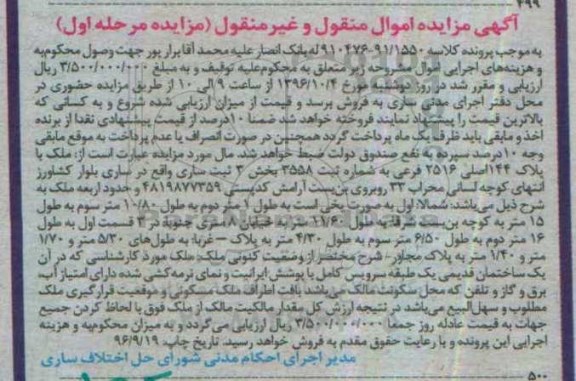 ۴۹۹
آگهی مزایده اموال منقول و غیر منقول (مزایده مرحله اول)
به موجب پرونده کلاسه ۹۱/۱۵۵۰-۹۱۰۴۷۶ له بانک انصار علیه محمد آقا برار پور جهت وصول محکوم‌به
و هزینه‌های اجرایی اموال مشروحه زیر متعلق به محکوم‌علیه توقیف و به مبلغ ۳/۵۰۰/۰۰۰/۰۰۰ ریال
ارزیابی و مقرر شد در روز دوشنبه مورخ ۱۳۹۶/۱۰/۴ از ساعت ۹ الی ۱۰ از طریق مزایده حضوری در
محل دفتر اجرای مدنی ساری به فروش برسد و قیمت از میزان ارزیابی شده شروع و به کسانی که
بالاترین قیمت را پیشنهاد نمایند فروخته خواهد شد ضمنا ۱۰درصد از قیمت پیشنهادی نقدا از برنده
اخذ و مابقی باید ظرف یک ماه پرداخت گردد همچنین در صورت انصراف یا عدم پرداخت به موقع مابقی
وجه ۱۰درصد سپرده به نفع صندوق دولت ضبط خواهد شد. مال مورد مزایده عبارت است از: ملک با
پلاک ۱۴۴اصلی ۲۵۱۶ فرعی به شماره ثبت ۳۵۵۸ بخش ۲ ثبت ساری واقع در ساری بلوار کشاورز
انتهای کوچه لسانی محراب ۳۳ روبروی بن‌بست آرامش کدپستی ۴۸۱۹۸۷۷۳۵۹ و حدود اربعه ملک به
شرح ذیل می‌باشد: شمالا: اول به صورت پخی است به طول ۱ متر دوم به طول ۱۰/۸۰ متر سوم به طول
۱۵ متر به کوچه بن‌بست شرقا: به طول ۱۱/۶۰ متر به خیابان ۸ متری جنوبا: در ۳ قسمت اول به طول
۱۶ متر دوم به طول ۶/۵۰ متر سوم به طول ۴/۳۰ متر به پلاک – غربا: به طول‌های ۵/۳۰ متر و ۱/۷۰
متر و ۱/۴۰ متر به پلاک مجاور- شرح مختصر از وضعیت کنونی ملک: ملک مورد کارشناسی که در آن
یک ساختمان قدیمی یک طبقه سرویس کامل با پوشش ایرانیت و نمای نرمه‌کشی شده دارای امتیاز آب،
برق و گاز و تلفن که محل سکونت مالک می‌باشد بافت اطراف ملک مسکونی و موقعیت قرارگیری ملک
مطلوب و سهل‌البیع می‌باشد در نتیجه ارزش کل مقدار مالکیت مالک از ملک فوق با لحاظ کردن جمیع
جهات به قیمت عادله روز جمعا ۳/۵۰۰/۰۰۰/۰۰۰ ریال ارزیابی می‌گردد و به میزان محکوم‌به و هزینه
اجرایی این پرونده و با رعایت حقوق مقدم به فروش خواهد رسید. تاریخ چاپ: ۹۶/۹/۱۹
مدیر اجرای احکام مدنی شورای حل اختلاف ساری
۵۰۰